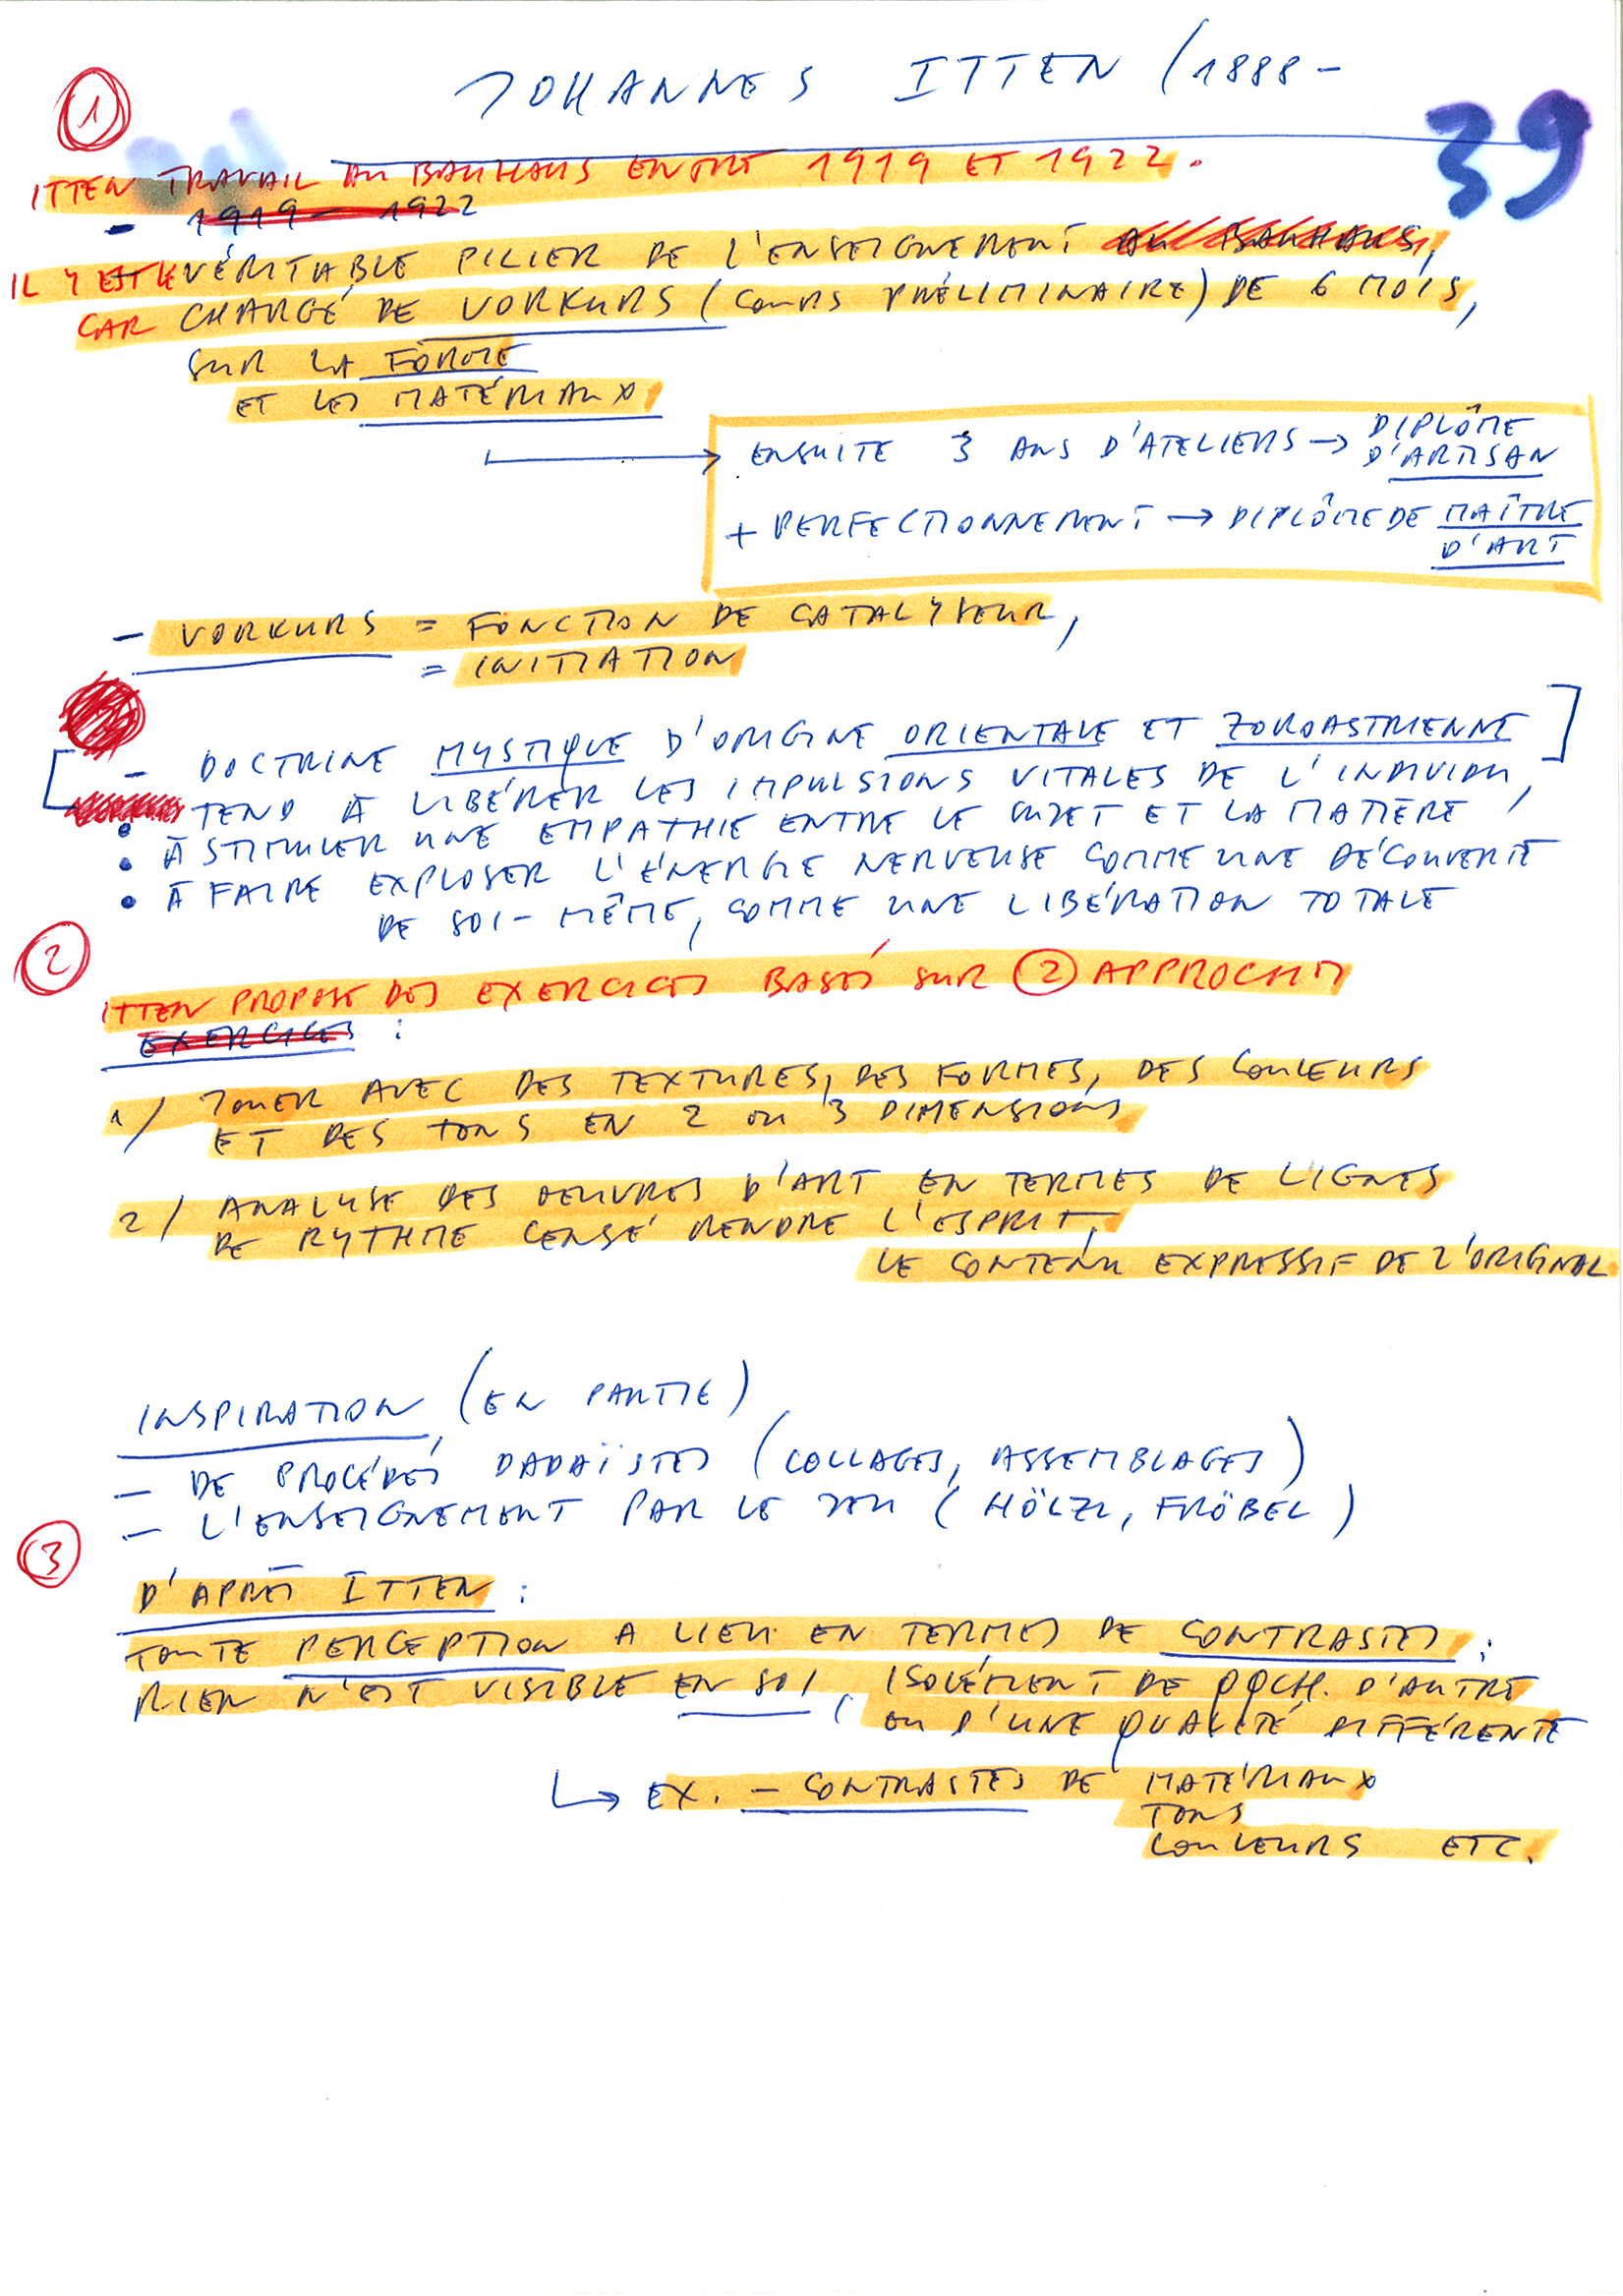 JOHANNES ITTEN (1888 –
1
39
ITTEN TRAVAIL AU BAUHAUS ENTRE 1919 ET 1922.
– 1919 – 1922
IL Y EST LE VÉRITABLE PILIER DE L'ENSEIGNEMENT AU BAUHAUS,
CAR CHARGÉ DE VORKURS (COURS PRÉLIMINAIRE) DE 6 MOIS,
SUR LA FORME
ET LES MATÉRIAUX
ENSUITE 3 ANS D'ATELIERS → DIPLÔME
D'ARTISAN
+ PERFECTIONNEMENT → DIPLÔME DE MAÎTRE
D'ART
– VORKURS = FONCTION DE CATALYSEUR,
= INITIATION
[ – DOCTRINE MYSTIQUE D'ORIGINE ORIENTALE ET ZOROASTRIENNE ]
• TEND À LIBÉRER LES IMPULSIONS VITALES DE L'INDIVIDU,
• À STIMULER UNE EMPATHIE ENTRE LE SUJET ET LA MATIÈRE,
• À FAIRE EXPLOSER L'ÉNERGIE NERVEUSE COMME UNE DÉCOUVERTE
DE SOI-MÊME, COMME UNE LIBÉRATION TOTALE
2
ITTEN PROPOSE DES EXERCICES BASÉS SUR 2 APPROCHES
EXERCICES :
1/ JOUER AVEC DES TEXTURES, DES FORMES, DES COULEURS
ET DES TONS EN 2 OU 3 DIMENSIONS
2/ ANALYSE DES OEUVRES D'ART EN TERMES DE LIGNES
DE RYTHME CENSÉ RENDRE L'ESPRIT,
LE CONTENU EXPRESSIF DE L'ORIGINAL.
INSPIRATION (EN PARTIE)
– DE PROCÉDÉS DADAÏSTES (COLLAGES, ASSEMBLAGES)
– L'ENSEIGNEMENT PAR LE JEU (HÖLZL, FRÖBEL)
3
D'APRÈS ITTEN :
TOUTE PERCEPTION A LIEU EN TERMES DE CONTRASTES :
RIEN N'EST VISIBLE EN SOI, ISOLÉMENT DE QQCH. D'AUTRE
OU D'UNE QUALITÉ DIFFÉRENTE
↳ EX. – CONTRASTES DE MATÉRIAUX
TONS
COULEURS ETC.